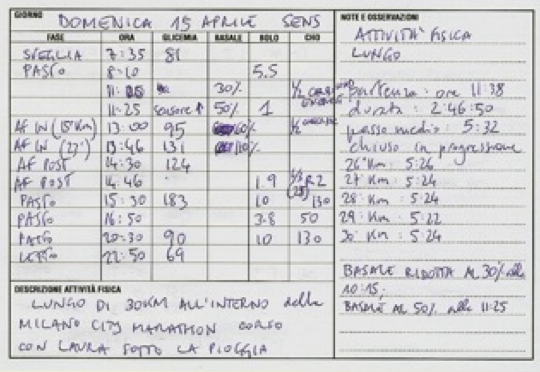 GIORNO DOMENICA 15 APRILE SENS
FASE ORA GLICEMIA BASALE BOLO CHO
SVEGLIA 7:35 81
PASTO 8:10 5.5
30%
11:25 sensore ↑ 50% 1
AF IN (15°Km) 13:00 95 60%
AF IN (27°) 13:46 131 110%
AF POST 14:30 124
AF POST 14:46 1.9 R2
PASTO 15:30 183 10 130
PASTO 16:50 3.8 50
PASTO 20:30 90 10 130
LETTO 22:50 69
DESCRIZIONE ATTIVITÀ FISICA
LUNGO DI 30KM ALL'INTERNO della
MILANO CITY MARATHON CORSO
CON LAURA SOTTO LA PIOGGIA
NOTE E OSSERVAZIONI
ATTIVITÀ FISICA
LUNGO
partenza: ore 11:38
durata: 2:46:50
passo medio: 5:32
chiuso in progressione
26° Km: 5:26
27 Km: 5:24
28° Km: 5:24
29° Km: 5:22
30° Km: 5:24
BASALE RIDOTTA AL 30% alle
10:15.
BASALE AL 50% alle 11:25